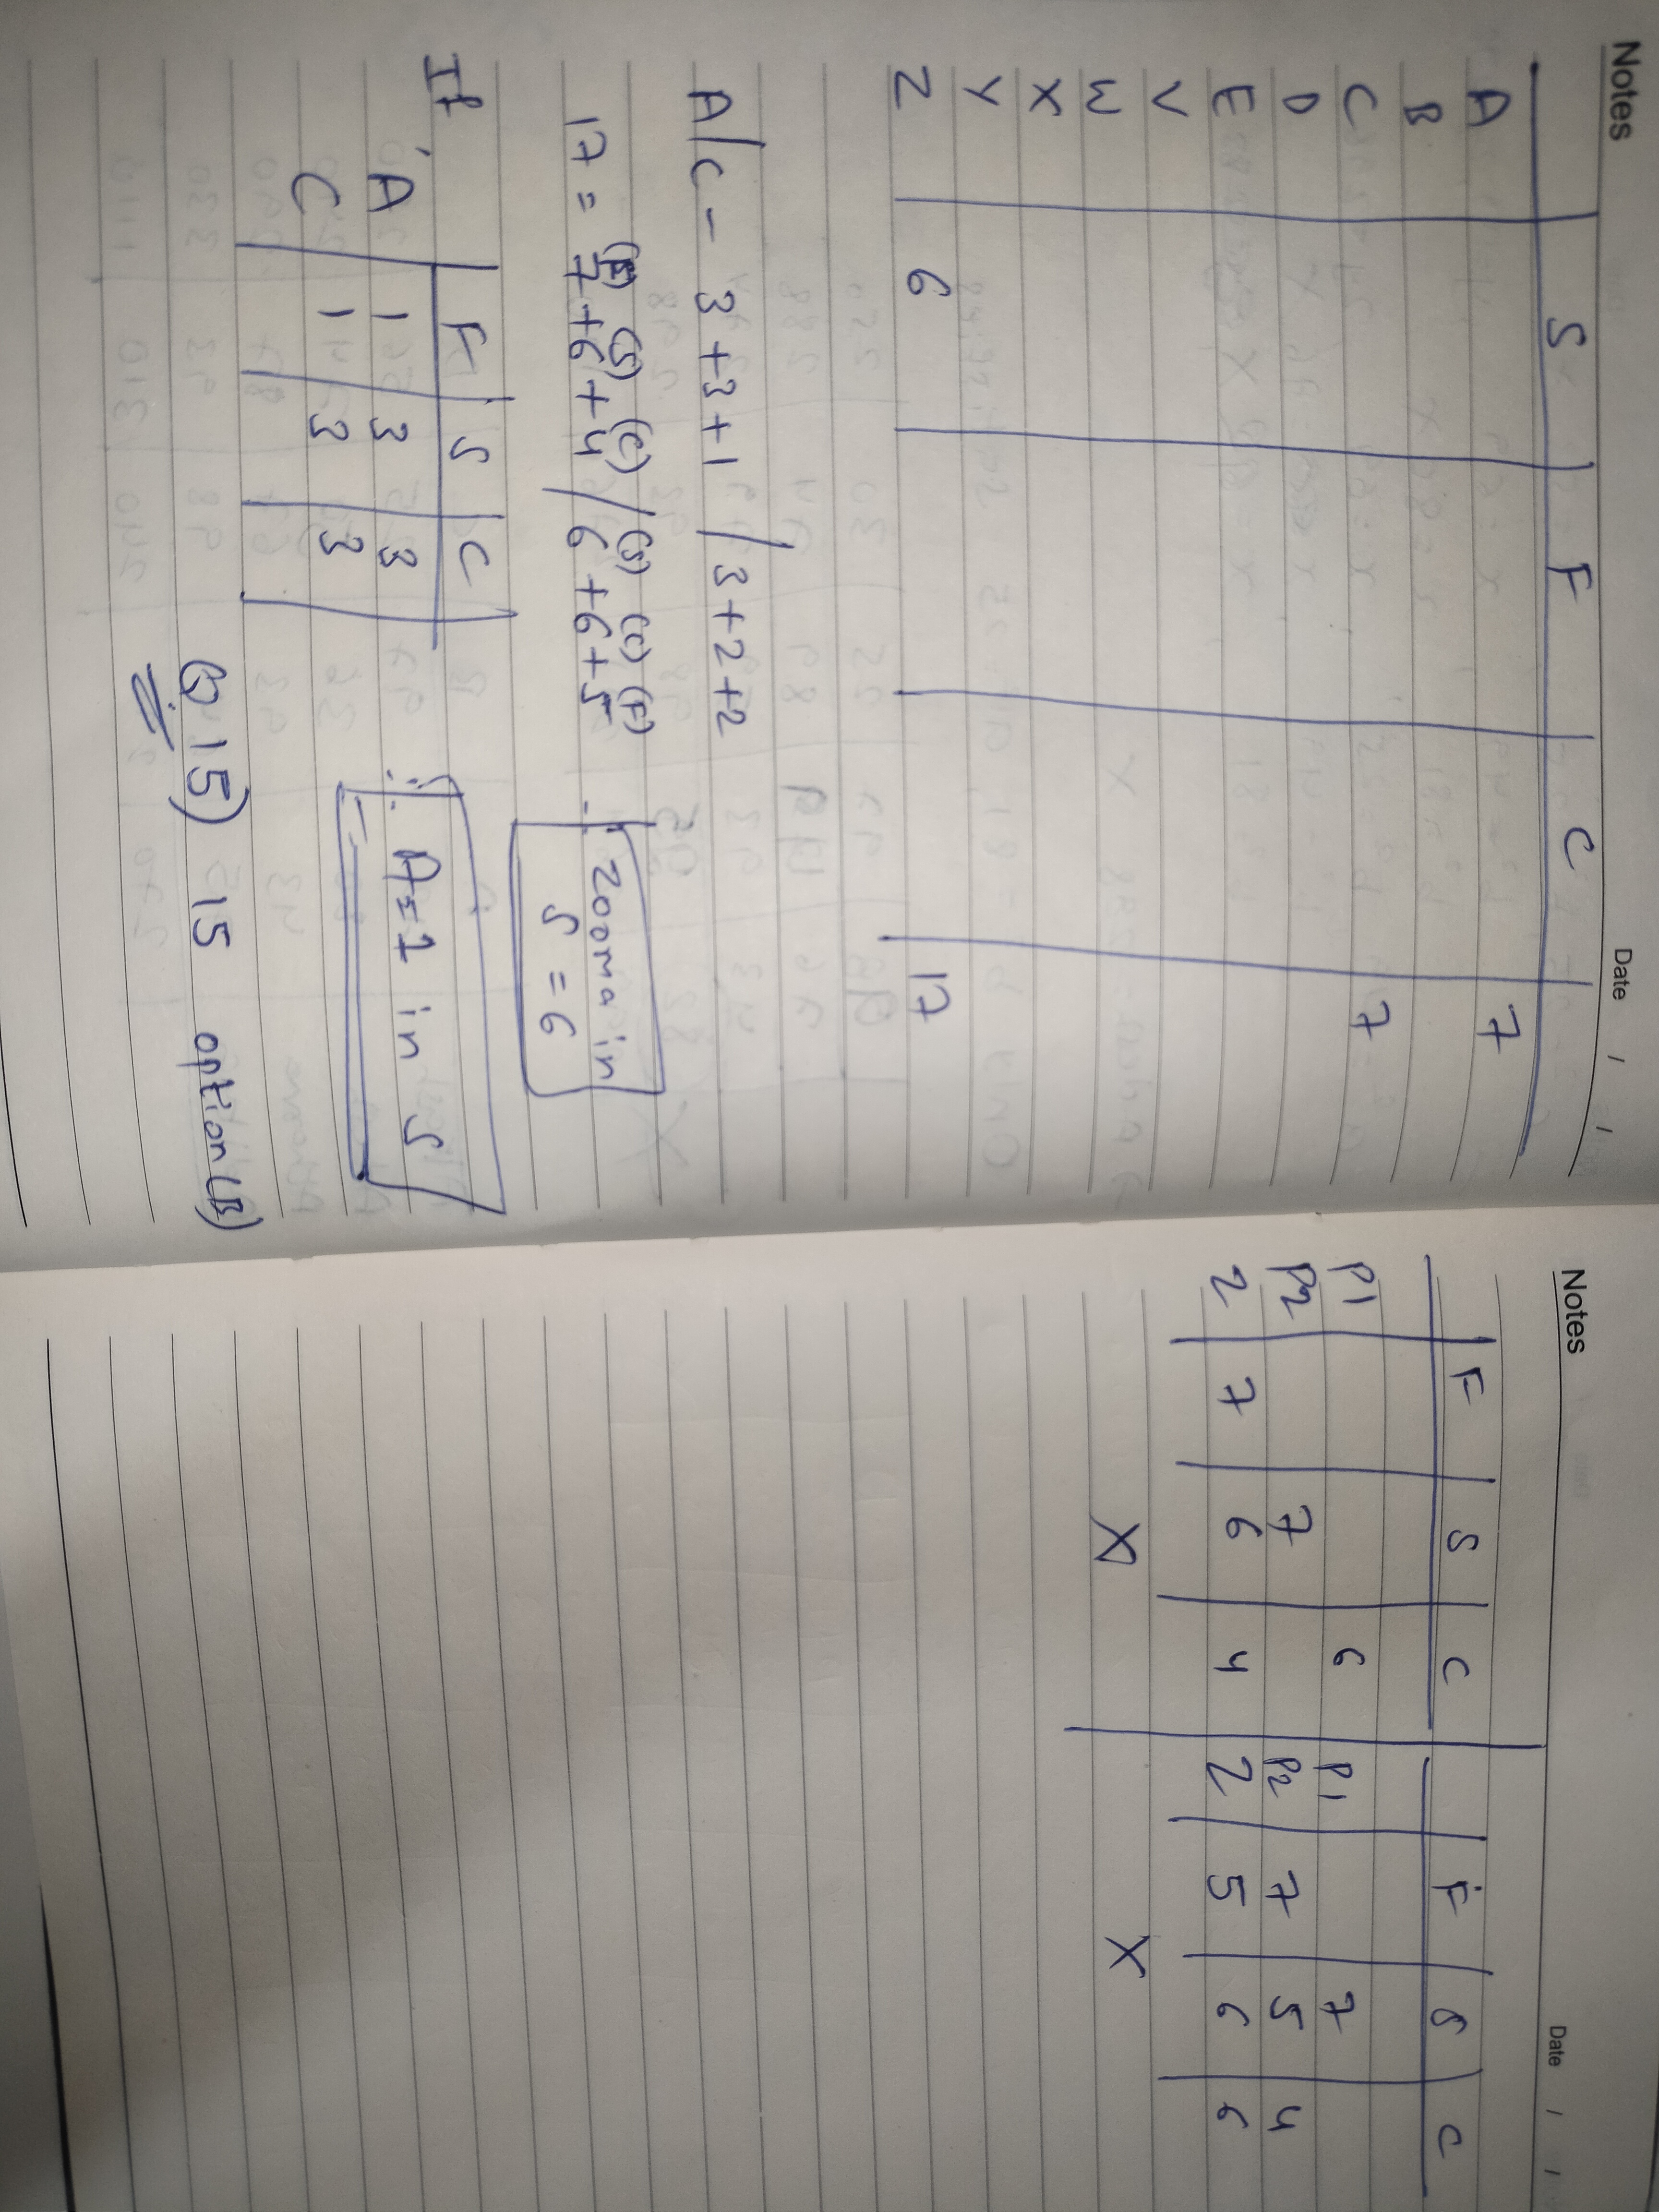 Notes Date / /
S F C
A 7
B
C 7
D
E
V
W
X
Y
Z 6 17
A/C - 3+3+1 / 3+2+2
(F) (S) (C) (S) (C) (F)
17 = 7+6+4 / 6+6+5
∴ Zooma in
S = 6
If,
F S C
A 1 3 3
C 1 3 3
∴ A=1 in S
Q 15) 15 option (B)
Notes Date / /
F S C
P1 6
P2 7
Z 7 6 4
X
F S C
P1 7
P2 7 5 4
Z 5 6 6
X